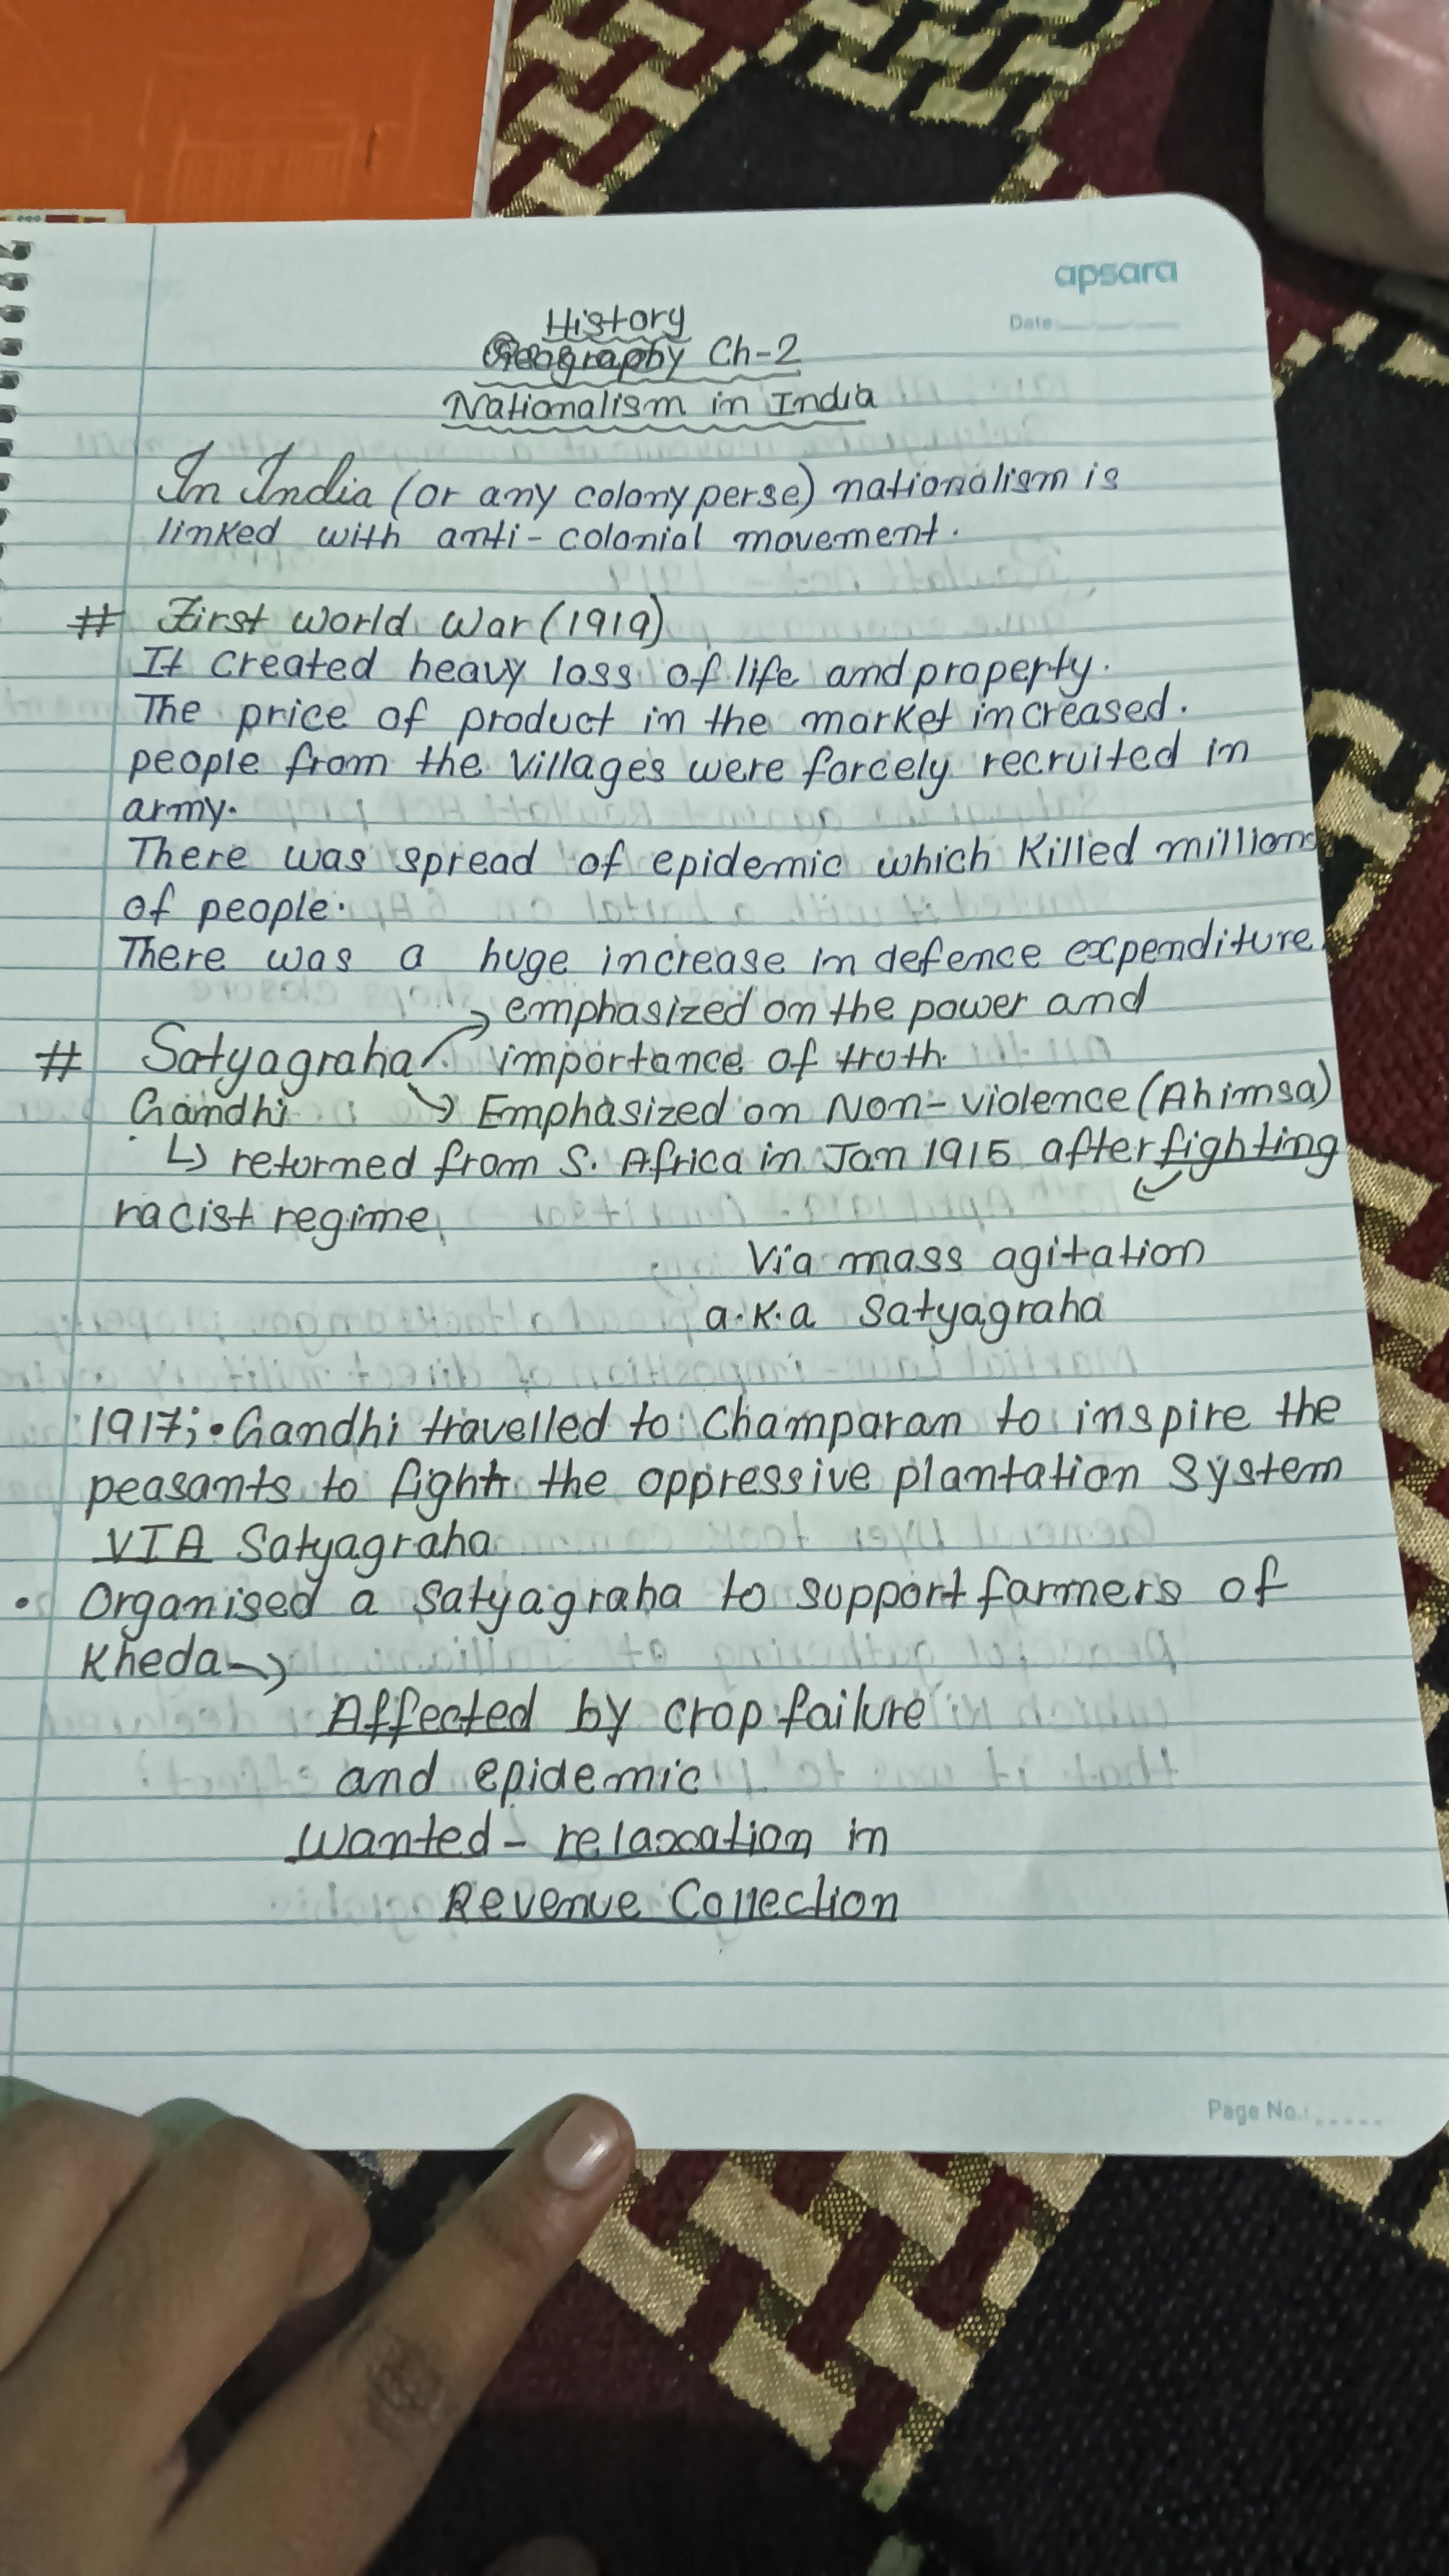 apsara
Date:
History
Geography Ch-2
Nationalism in India
In India (or any colony perse) nationalism is
linked with anti-colonial movement.
# First World War (1919)
It created heavy loss of life and property.
The price of product in the market increased.
people from the villages were forcely recruited in
army.
There was spread of epidemic which killed millions
of people.
There was a huge increase in defence expenditure
→ emphasized on the power and
# Satyagraha importance of truth.
Gandhi → Emphasized on Non-violence (Ahimsa)
↳ returned from S. Africa in Jan 1915 after fighting
racist regime
Via mass agitation
a.k.a Satyagraha
1917; • Gandhi travelled to Champaran to inspire the
peasants to fight the oppressive plantation system
VIA Satyagraha
• Organised a satyagraha to support farmers of
Kheda →
Affected by crop failure
and epidemic
Wanted - relaxation in
Revenue Collection
Page No.: